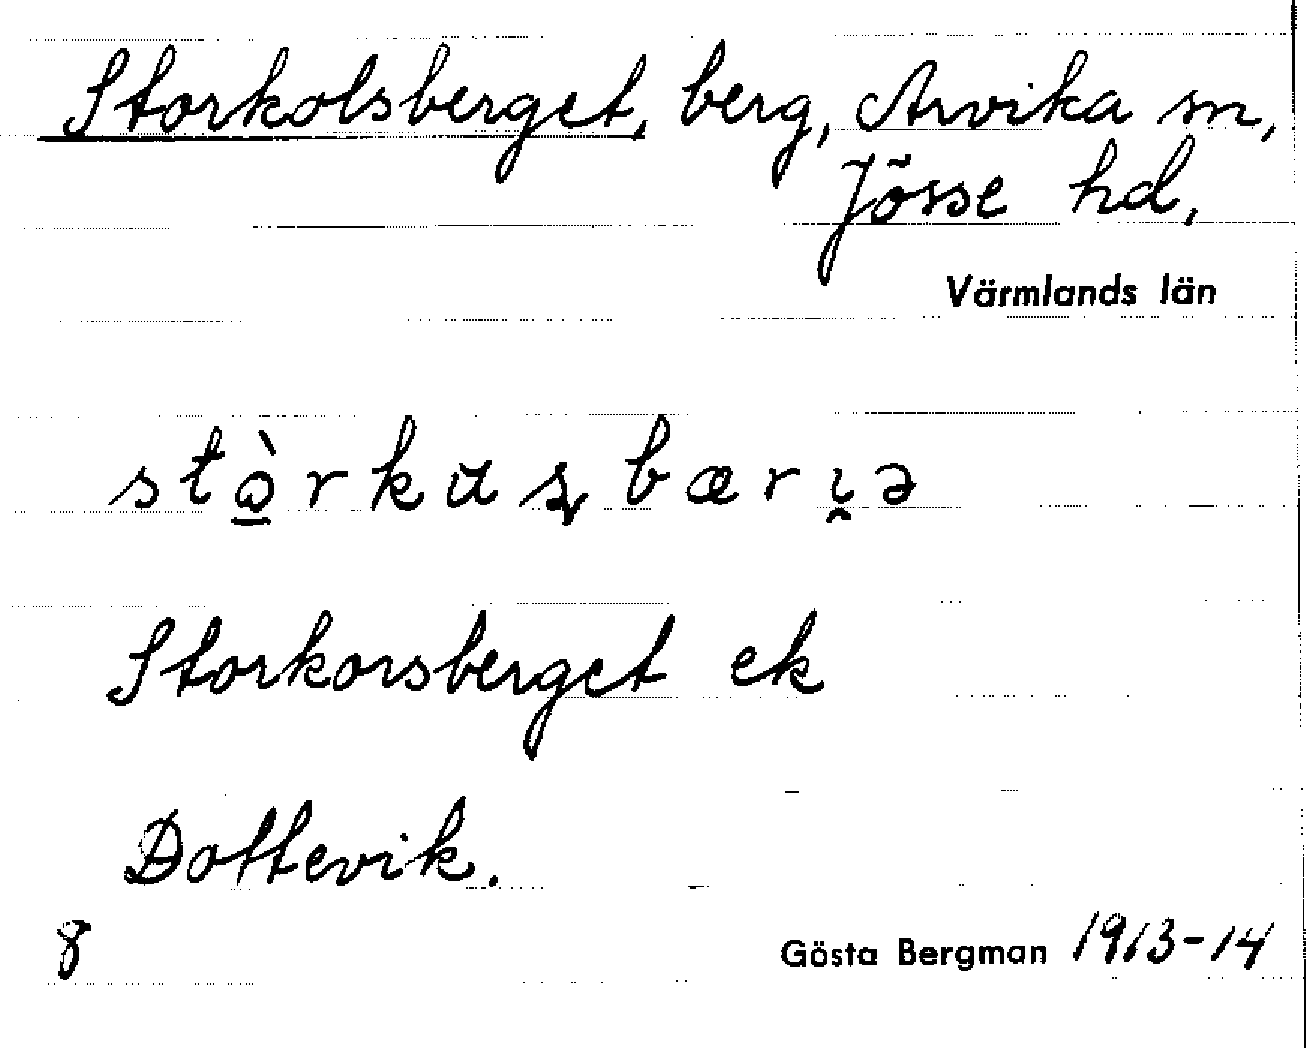 Storkolsberget, berg, Arvika sn,
Jösse hd,
Värmlands län
stò̱rkʉʂbæri̯ə
Storkorsberget ek
Dottevik.
8 Gösta Bergman 1913-14